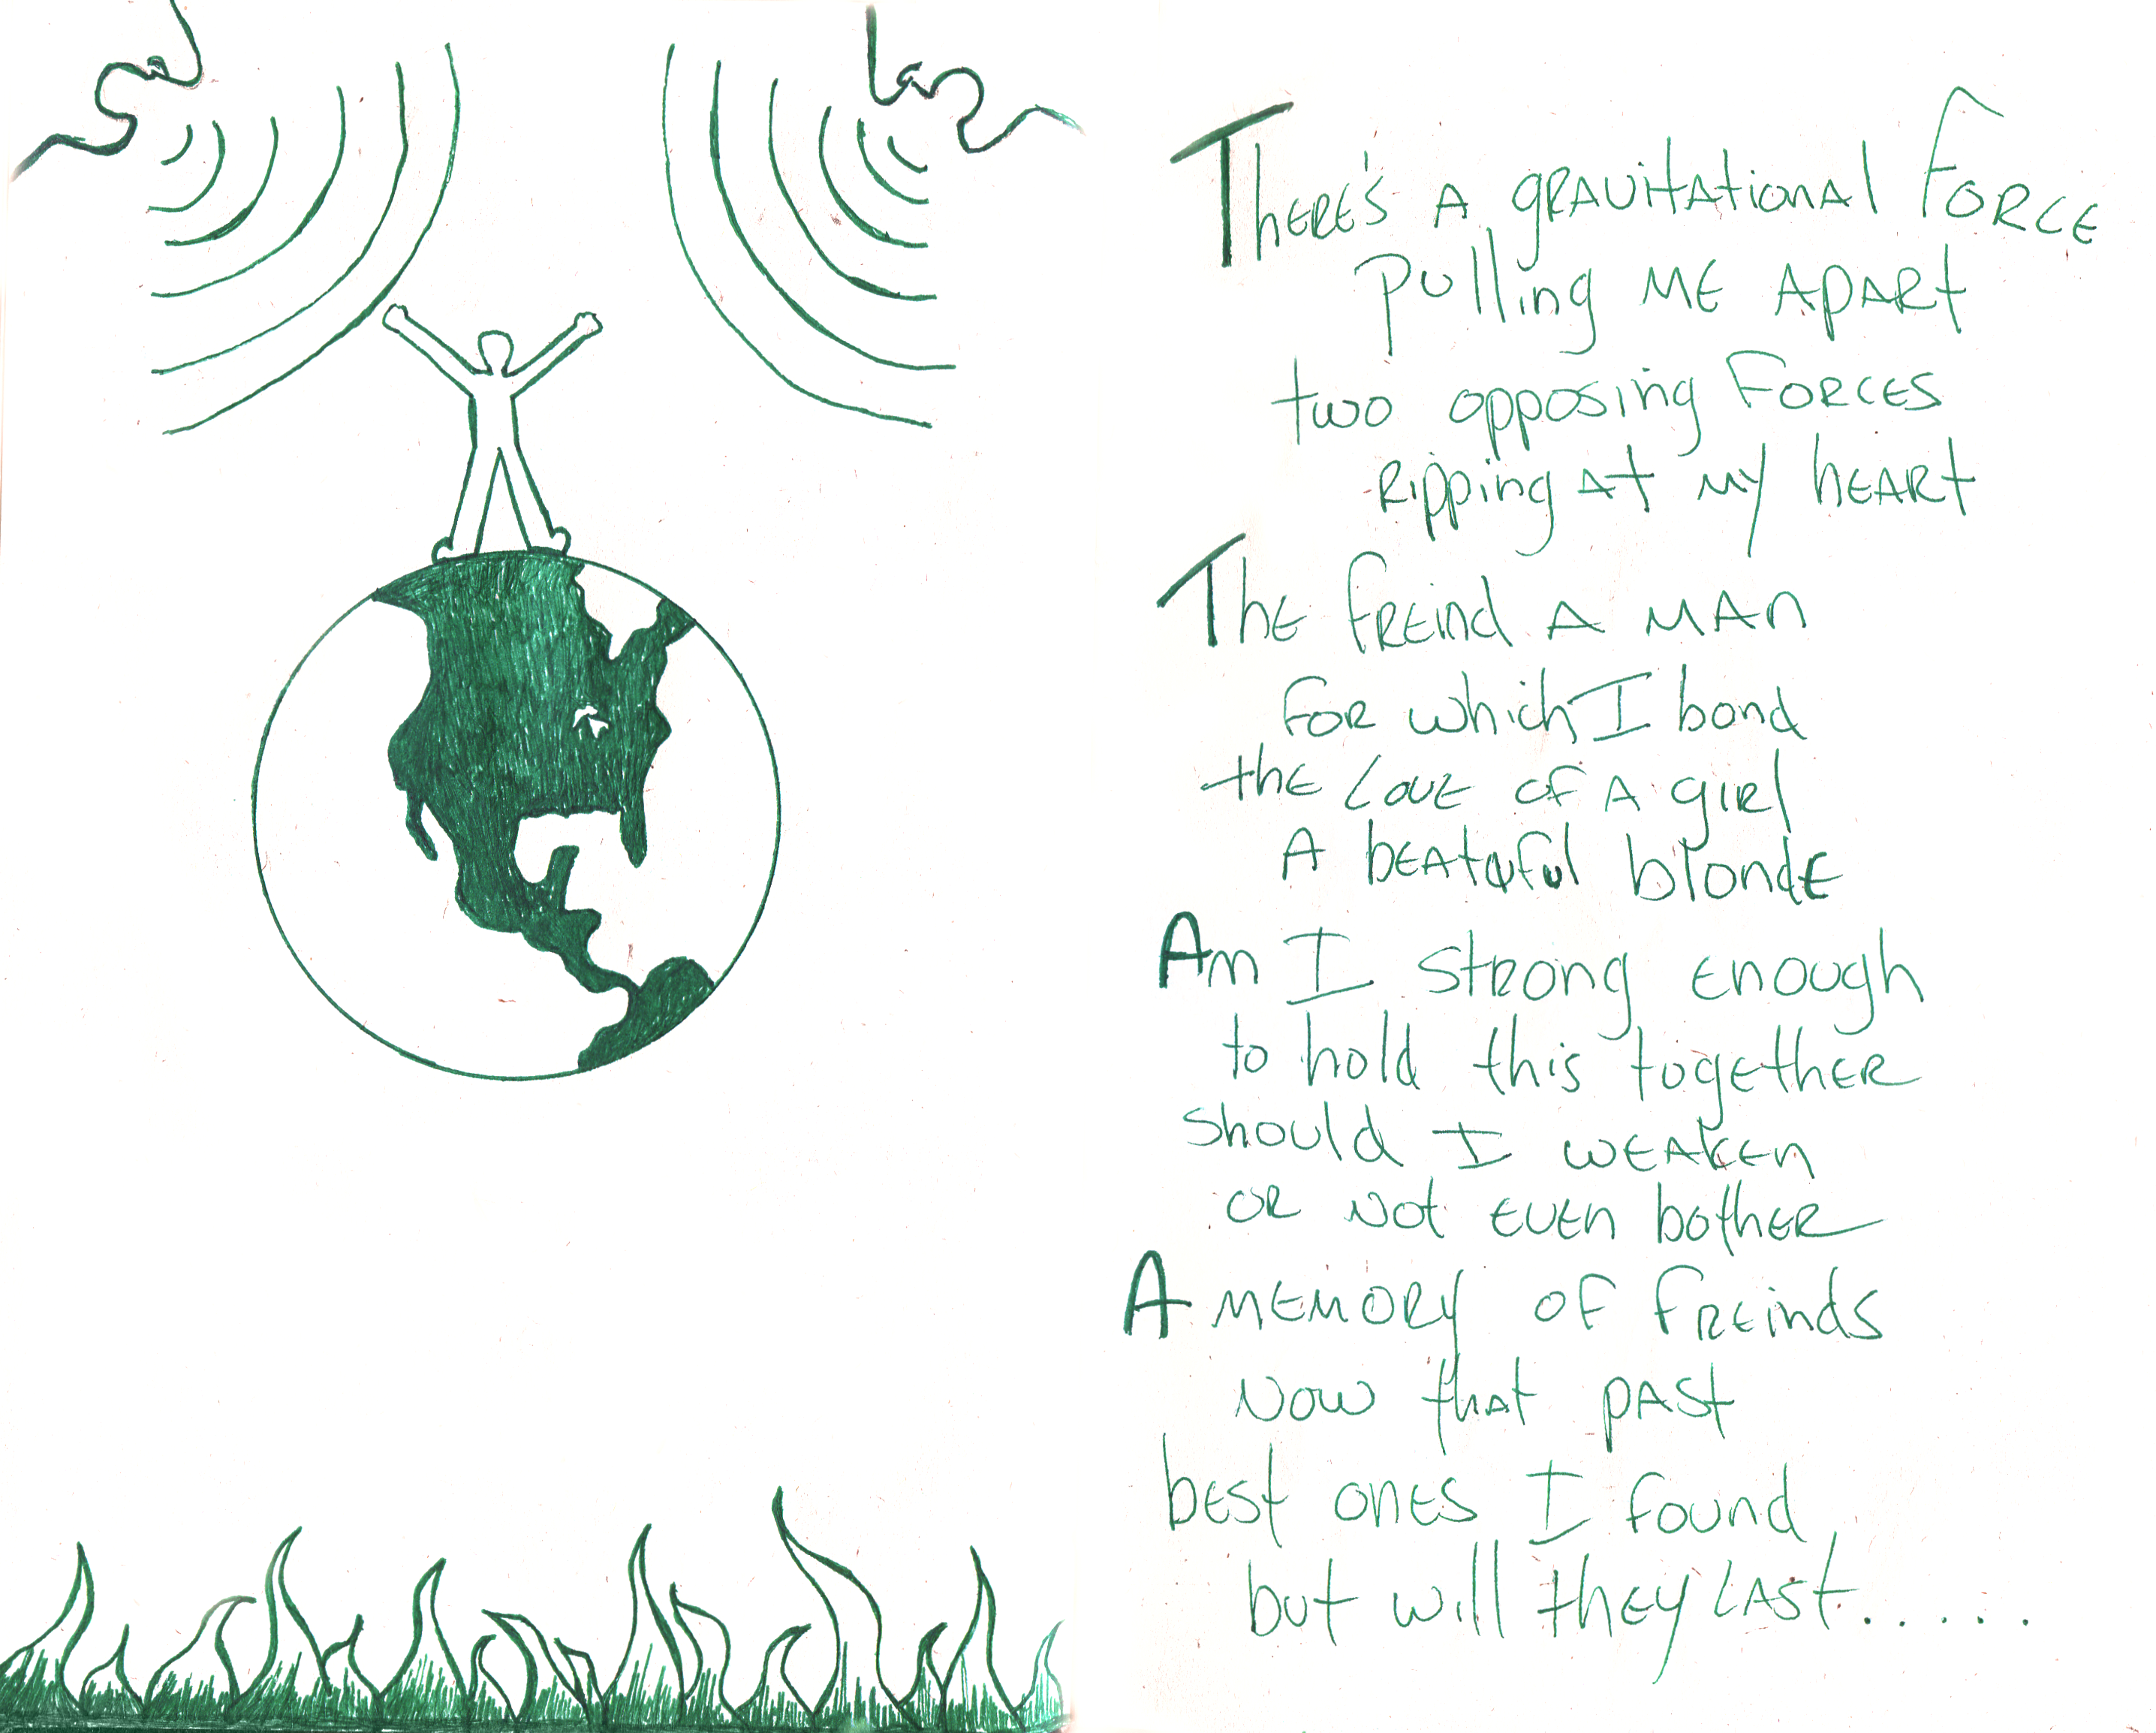 There's a gravitational Force
pulling me apart
two opposing Forces
ripping at my heart
The freind a man
for which I bond
the love of a girl
A beatuful blonde
Am I strong enough
to hold this together
should I weaken
or not even bother
A memory of freinds
now that past
best ones I found
but will they last......